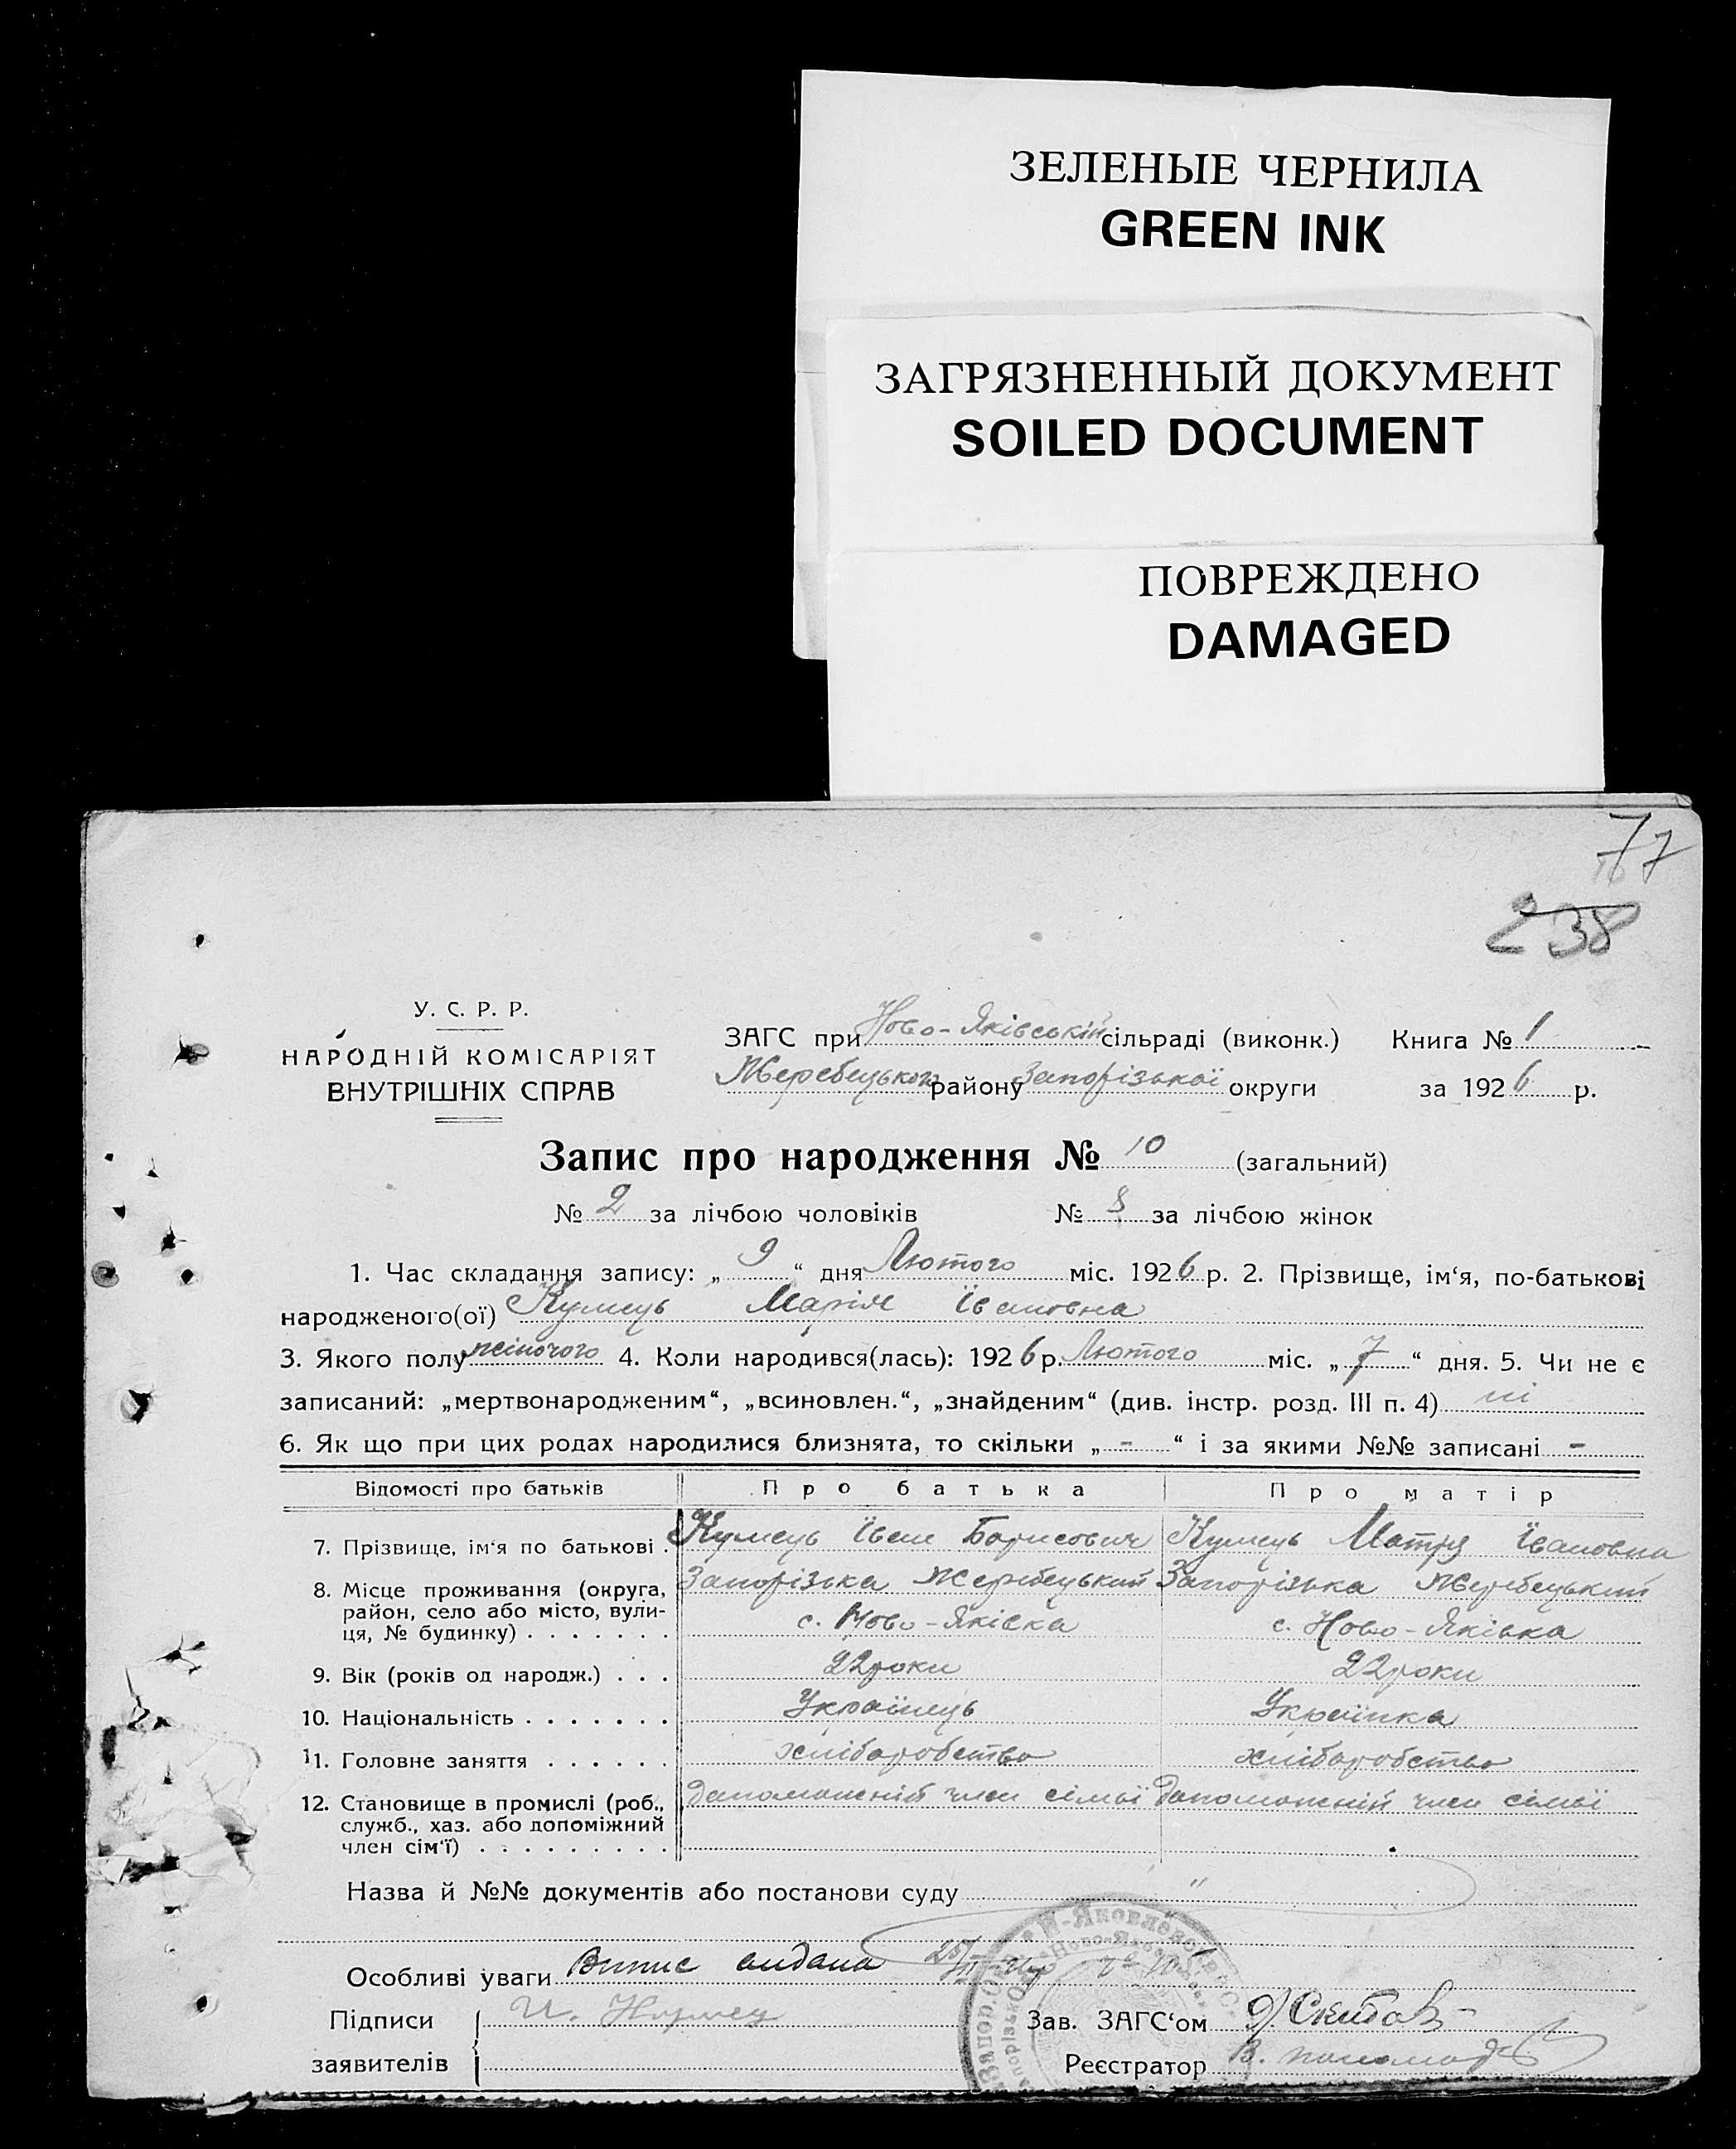 ЗЕЛЕНЫЕ ЧЕРНИЛА
GREEN INK
ЗАГРЯЗНЕННЫЙ ДОКУМЕНТ
SOILED DOCUMENT
ПОВРЕЖДЕНО
DAMAGED
77
238
У. С. Р. Р.
НАРОДНІЙ КОМІСАРІЯТ
ВНУТРІШНІХ СПРАВ
ЗАГС при Ново-Яківській сільраді (виконк.) Книга № 1
Жеребецького району Запорізької округи за 1926 р.
Запис про народження № 10 (загальний)
№ 2 за лічбою чоловіків № 8 за лічбою жінок
1. Час складання запису: „ 9 “ дня Лютого міс. 1926 р. 2. Прізвище, ім‘я, по-батькові
народженого(ої) Кумець Марія Івановна
3. Якого полу жіночого 4. Коли народився(лась): 1926 р. Лютого міс. „ 7 “ дня. 5. Чи не є
записаний: „мертвонародженим“, „всиновлен.“, „знайденим“ (див. інстр. розд. III п. 4) ні
6. Як що при цих родах народилися близнята, то скільки „ - “ і за якими №№ записані -
Відомості про батьків Про батька Про матір
7. Прізвище, ім‘я по батькові . Кумець Іван Борисович Кумець Мотря Івановна
8. Місце проживання (округа, Запорізька Жеребецький Запорізька Жеребецький
район, село або місто, вули- с. Ново-Яківка с. Ново-Яківка
ця, № будинку) . . . . . . .
9. Вік (років од народж.) . . . 22 роки 22 роки
10. Національність . . . . . . . Українець Українка
11. Головне заняття . . . . . . хліборобство хліборобство
12. Становище в промислі (роб., допоможній член сімьї допоможній член сімьї
служб., хаз. або допоміжний
член сім‘ї) . . . . . . . . .
Назва й №№ документів або постанови суду "
Особливі уваги Випис видана
Підписи И. Кумец Зав. ЗАГС‘ом Скиба
заявителів Реєстратор В.